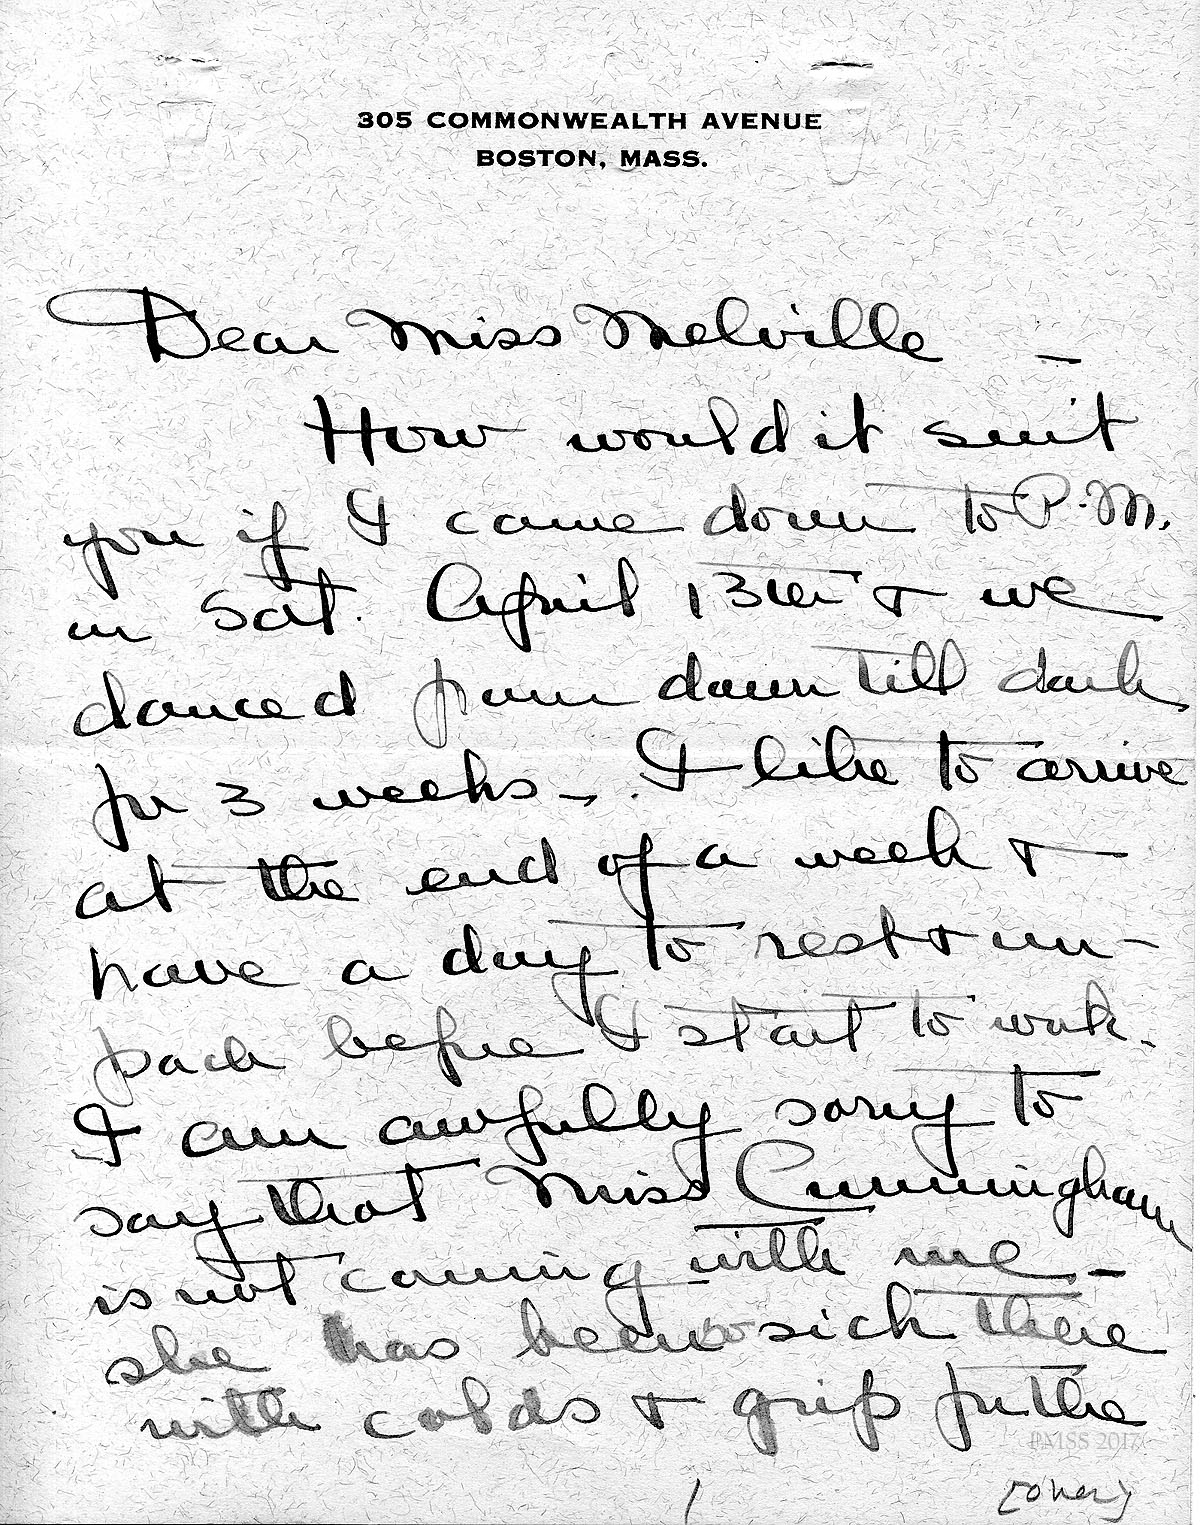 305 COMMONWEALTH AVENUE
BOSTON, MASS.
Dear Miss Melville —
How would it suit
you if I came down to P.M.
on Sat. April 13th & we
danced from dawn till dark
for 3 weeks —. I like to arrive
at the end of a week &
have a day to rest & un-
pack before I start to work.
I am awfully sorry to
say that Miss Cunningham
is not coming with me —
she has been so sick there
with colds & grip for the
PMSS 2017
1 [over]